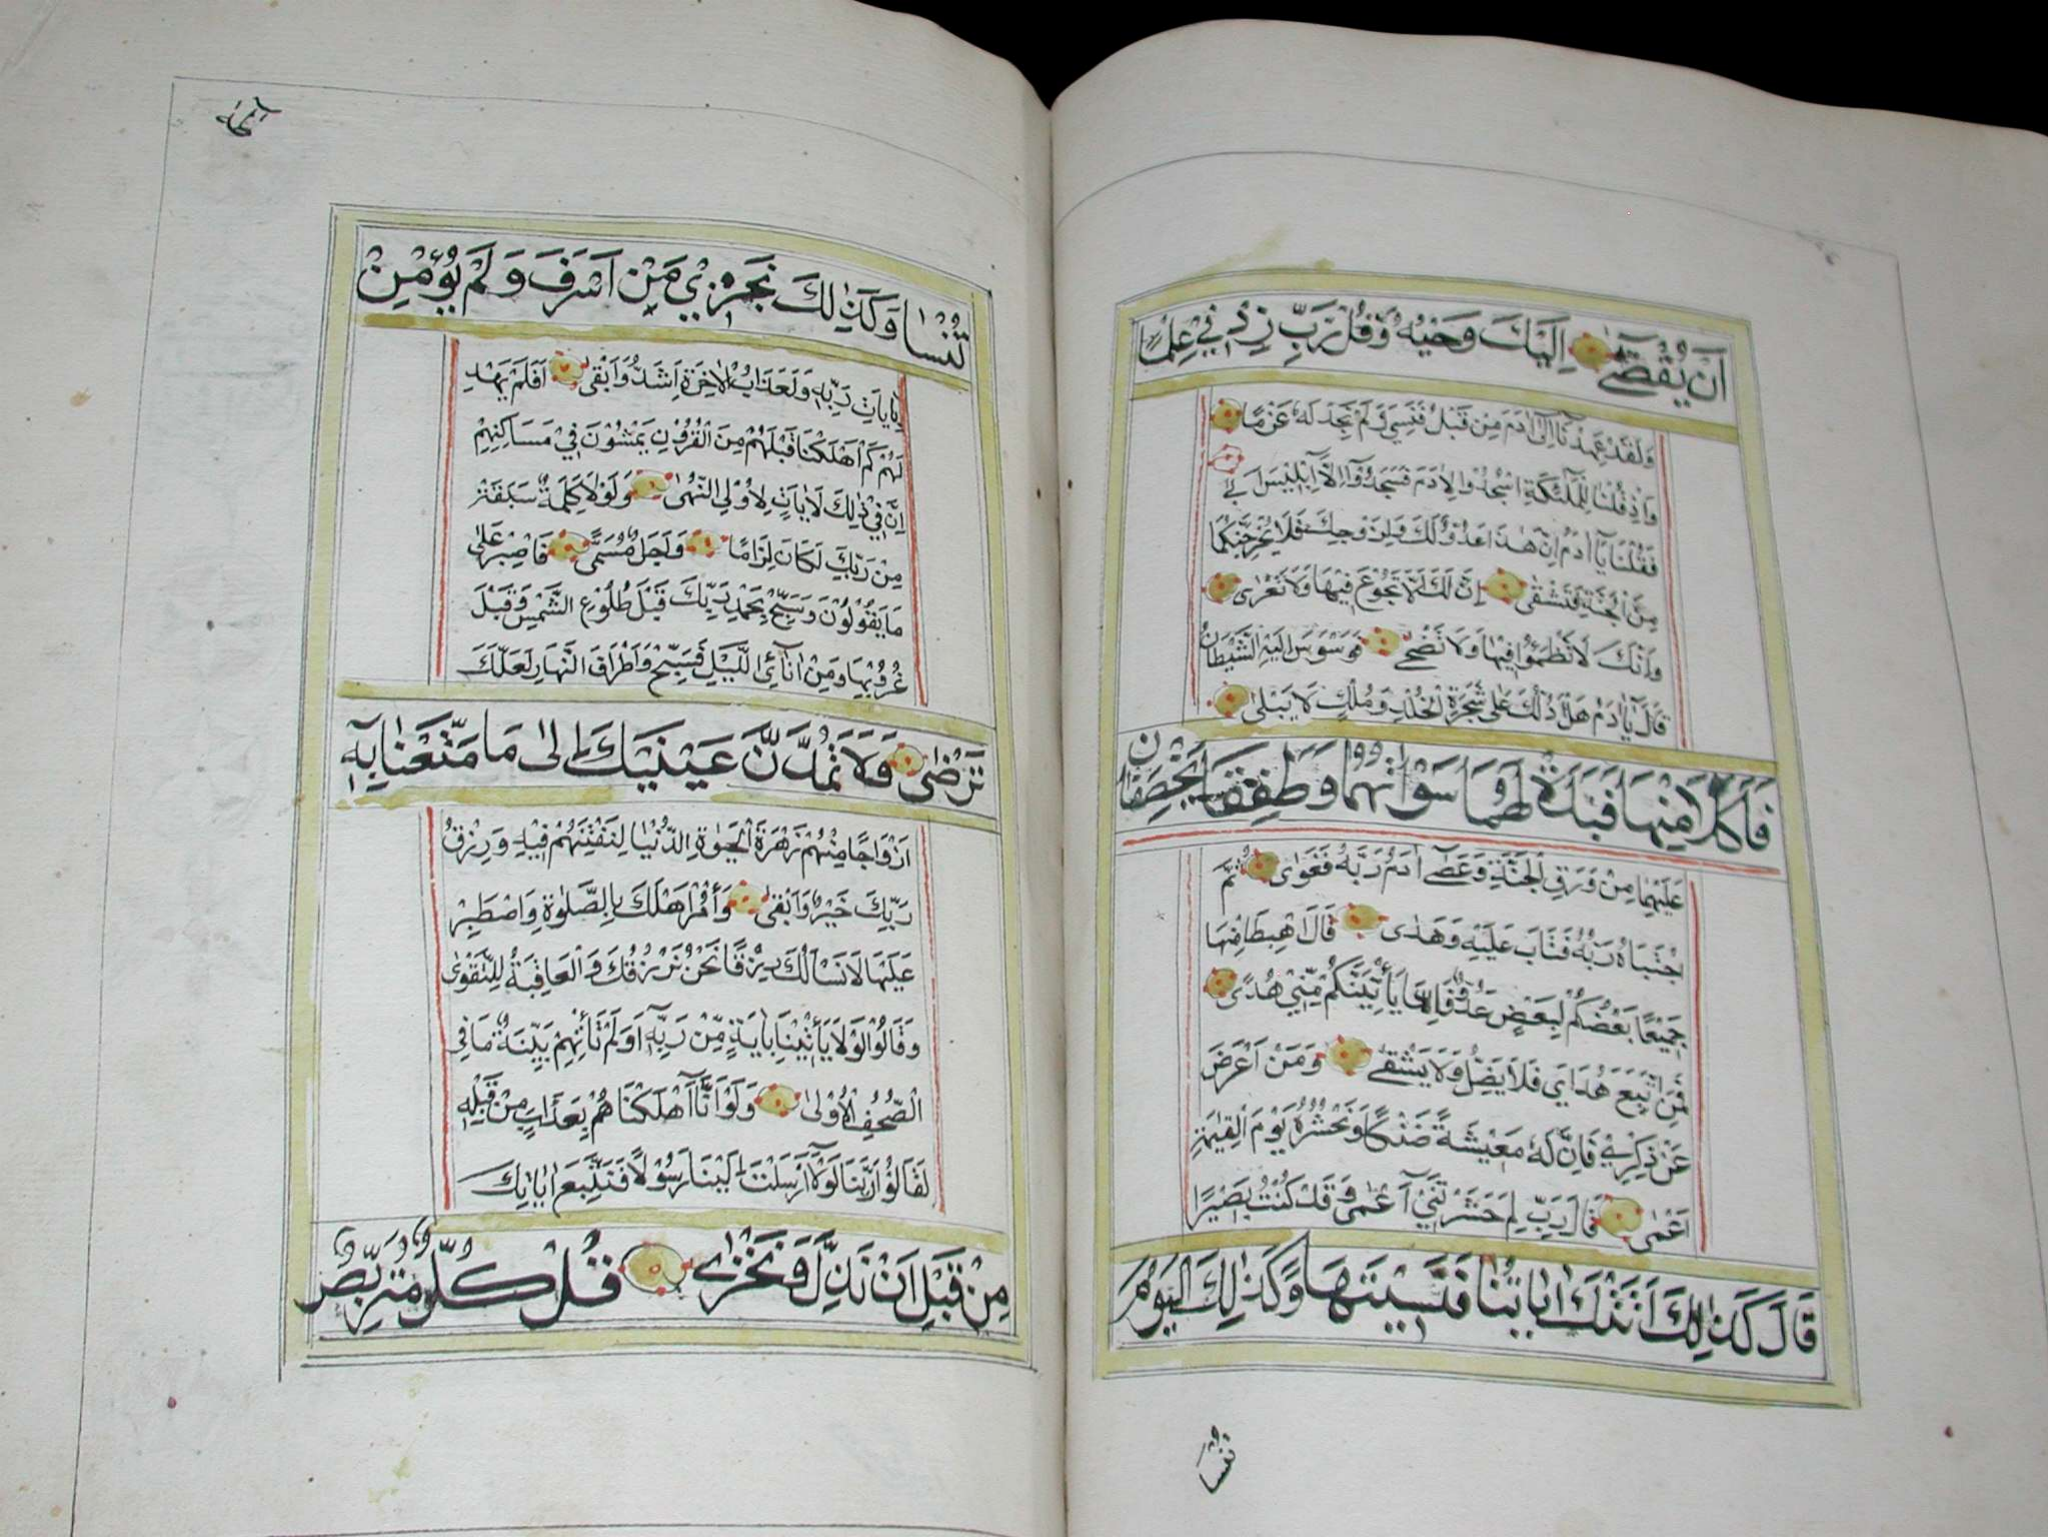 اَنْ يُقْضٰٓى اِلَيْكَ وَحْيُهُ وَقُلْ رَبِّ زِدْنِي عِلْمًا
وَلَقَدْ عَهِدْنَٓا اِلٰٓى اٰدَمَ مِنْ قَبْلُ فَنَسِيَ وَلَمْ نَجِدْ لَهُ عَزْمًا
وَاِذْ قُلْنَا لِلْمَلٰٓئِكَةِ اسْجُدُوا لِاٰدَمَ فَسَجَدُٓوا اِلَّٓا اِبْلِيْسَ اَبٰى
فَقُلْنَا يَٓا اٰدَمُ اِنَّ هٰذَا عَدُوٌّ لَكَ وَلِزَوْجِكَ فَلَا يُخْرِجَنَّكُمَا
مِنَ الْجَنَّةِ فَتَشْقٰى اِنَّ لَكَ اَلَّا تَجُوْعَ فِيْهَا وَلَا تَعْرٰى
وَاَنَّكَ لَا تَظْمَؤُا فِيْهَا وَلَا تَضْحٰى فَوَسْوَسَ اِلَيْهِ الشَّيْطَانُ
قَالَ يَٓا اٰدَمُ هَلْ اَدُلُّكَ عَلٰى شَجَرَةِ الْخُلْدِ وَمُلْكٍ لَا يَبْلٰى
فَاَكَلَا مِنْهَا فَبَدَتْ لَهُمَا سَوْاٰتُهُمَا وَطَفِقَا يَخْصِفَانِ
عَلَيْهِمَا مِنْ وَرَقِ الْجَنَّةِ وَعَصٰٓى اٰدَمُ رَبَّهُ فَغَوٰى ثُمَّ
اجْتَبَاهُ رَبُّهُ فَتَابَ عَلَيْهِ وَهَدٰى قَالَ اهْبِطَا مِنْهَا
جَمِيْعًا بَعْضُكُمْ لِبَعْضٍ عَدُوٌّ فَاِمَّا يَأْتِيَنَّكُمْ مِنِّيْ هُدًى
فَمَنِ اتَّبَعَ هُدَايَ فَلَا يَضِلُّ وَلَا يَشْقٰى وَمَنْ اَعْرَضَ
عَنْ ذِكْرِيْ فَاِنَّ لَهُ مَعِيْشَةً ضَنْكًا وَنَحْشُرُهُ يَوْمَ الْقِيٰمَةِ
اَعْمٰى قَالَ رَبِّ لِمَ حَشَرْتَنِيْٓ اَعْمٰى وَقَدْ كُنْتُ بَصِيْرًا
قَالَ كَذٰلِكَ اَتَتْكَ اٰيَاتُنَا فَنَسِيْتَهَا وَكَذٰلِكَ الْيَوْمَ
تنسا
تُنْسٰا وَكَذٰلِكَ نَجْزِيْ مَنْ اَسْرَفَ وَلَمْ يُؤْمِنْ
بِاٰيَاتِ رَبِّهِ وَلَعَذَابُ الْاٰخِرَةِ اَشَدُّ وَاَبْقٰى اَفَلَمْ يَهْدِ
لَهُمْ كَمْ اَهْلَكْنَا قَبْلَهُمْ مِنَ الْقُرُوْنِ يَمْشُوْنَ فِيْ مَسَاكِنِهِمْ
اِنَّ فِيْ ذٰلِكَ لَاٰيَاتٍ لِاُولِي النُّهٰى وَلَوْلَا كَلِمَةٌ سَبَقَتْ
مِنْ رَبِّكَ لَكَانَ لِزَامًا وَاَجَلٌ مُسَمًّى فَاصْبِرْ عَلٰى
مَا يَقُوْلُوْنَ وَسَبِّحْ بِحَمْدِ رَبِّكَ قَبْلَ طُلُوْعِ الشَّمْسِ وَقَبْلَ
غُرُوْبِهَا وَمِنْ اٰنَآئِ اللَّيْلِ فَسَبِّحْ وَاَطْرَافَ النَّهَارِ لَعَلَّكَ
تَرْضٰى وَلَا تَمُدَّنَّ عَيْنَيْكَ اِلٰى مَا مَتَّعْنَا بِهِ
اَزْوَاجًا مِنْهُمْ زَهْرَةَ الْحَيٰوةِ الدُّنْيَا لِنَفْتِنَهُمْ فِيْهِ وَرِزْقُ
رَبِّكَ خَيْرٌ وَاَبْقٰى وَأْمُرْ اَهْلَكَ بِالصَّلٰوةِ وَاصْطَبِرْ
عَلَيْهَا لَا نَسْاَلُكَ رِزْقًا نَحْنُ نَرْزُقُكَ وَالْعَاقِبَةُ لِلتَّقْوٰى
وَقَالُوْا لَوْلَا يَأْتِيْنَا بِاٰيَةٍ مِنْ رَبِّهِ اَوَلَمْ تَأْتِهِمْ بَيِّنَةُ مَا فِي
الصُّحُفِ الْاُوْلٰى وَلَوْ اَنَّٓا اَهْلَكْنَاهُمْ بِعَذَابٍ مِنْ قَبْلِهِ
لَقَالُوْا رَبَّنَا لَوْلَٓا اَرْسَلْتَ اِلَيْنَا رَسُوْلًا فَنَتَّبِعَ اٰيَاتِكَ
مِنْ قَبْلِ اَنْ نَذِلَّ وَنَخْزٰى قُلْ كُلٌّ مُتَرَبِّصٌ